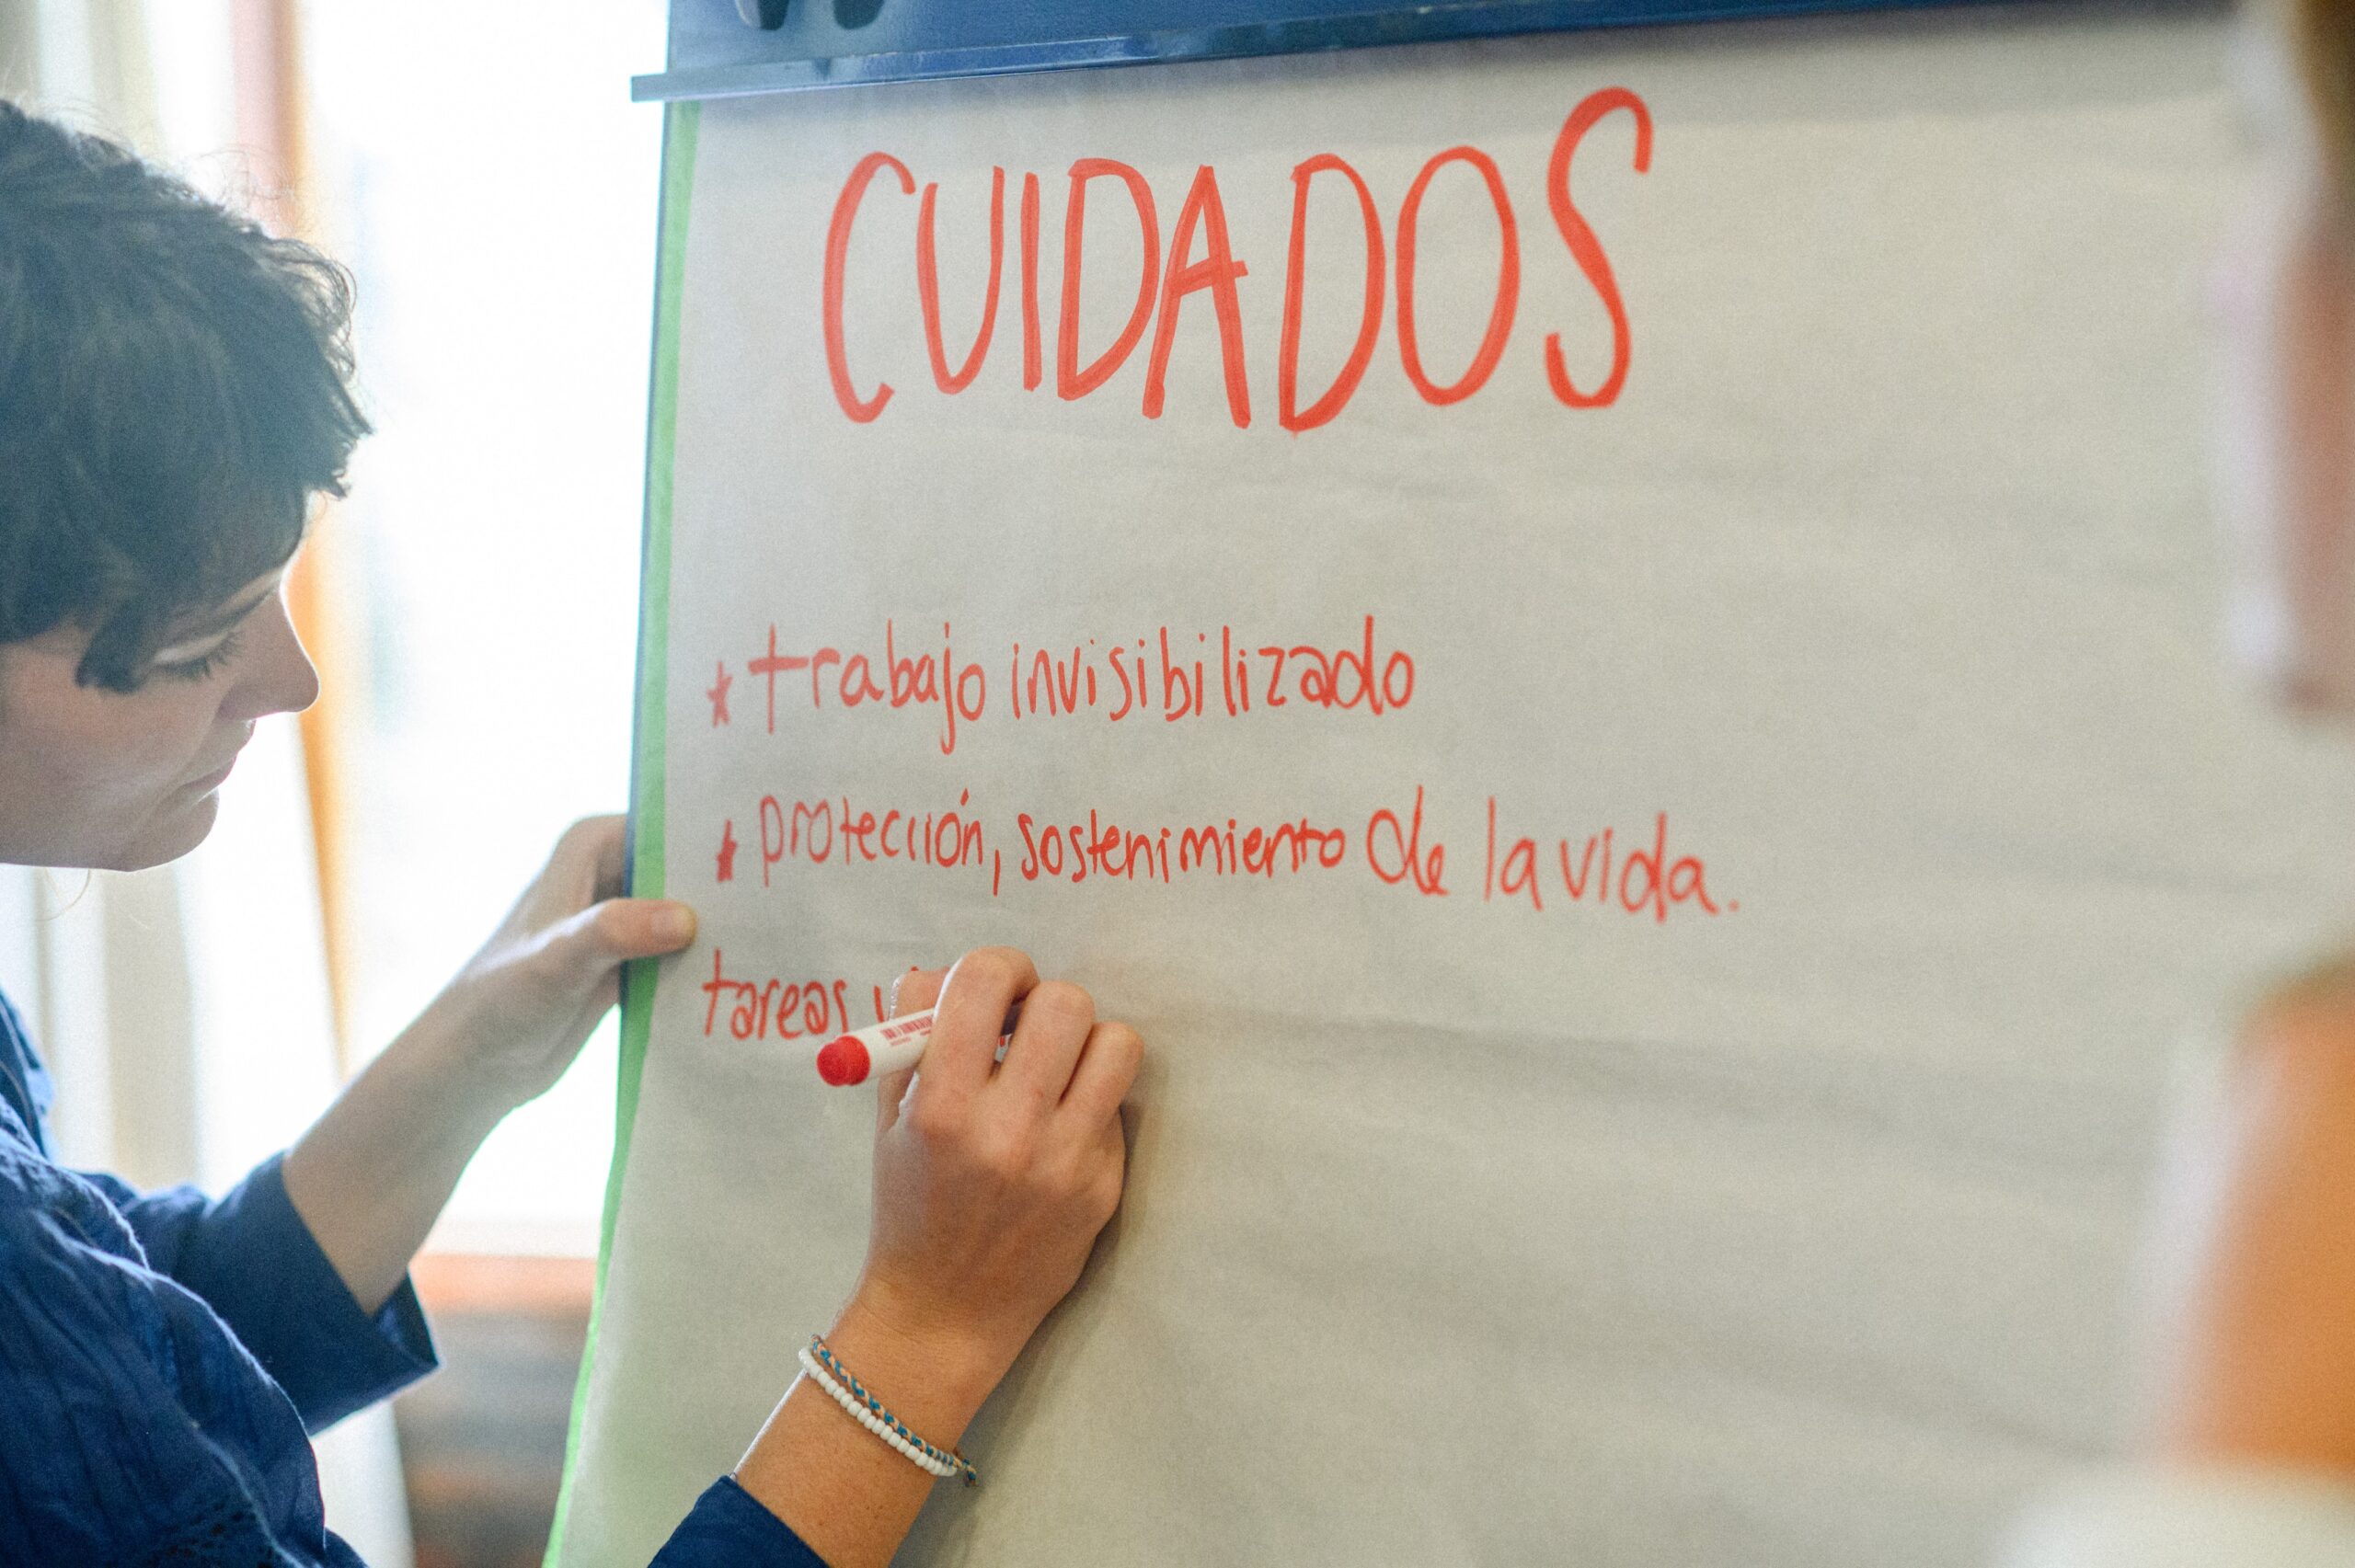 CUIDADOS
* trabajo invisibilizado
* protección, sostenimiento de la vida.
tareas